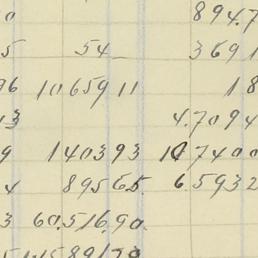 0 894.7
5 54_ 3691
96 1065911 18
13 4.7094
9 140393 107400
4 89565. 6.5932
3 60.516.90.